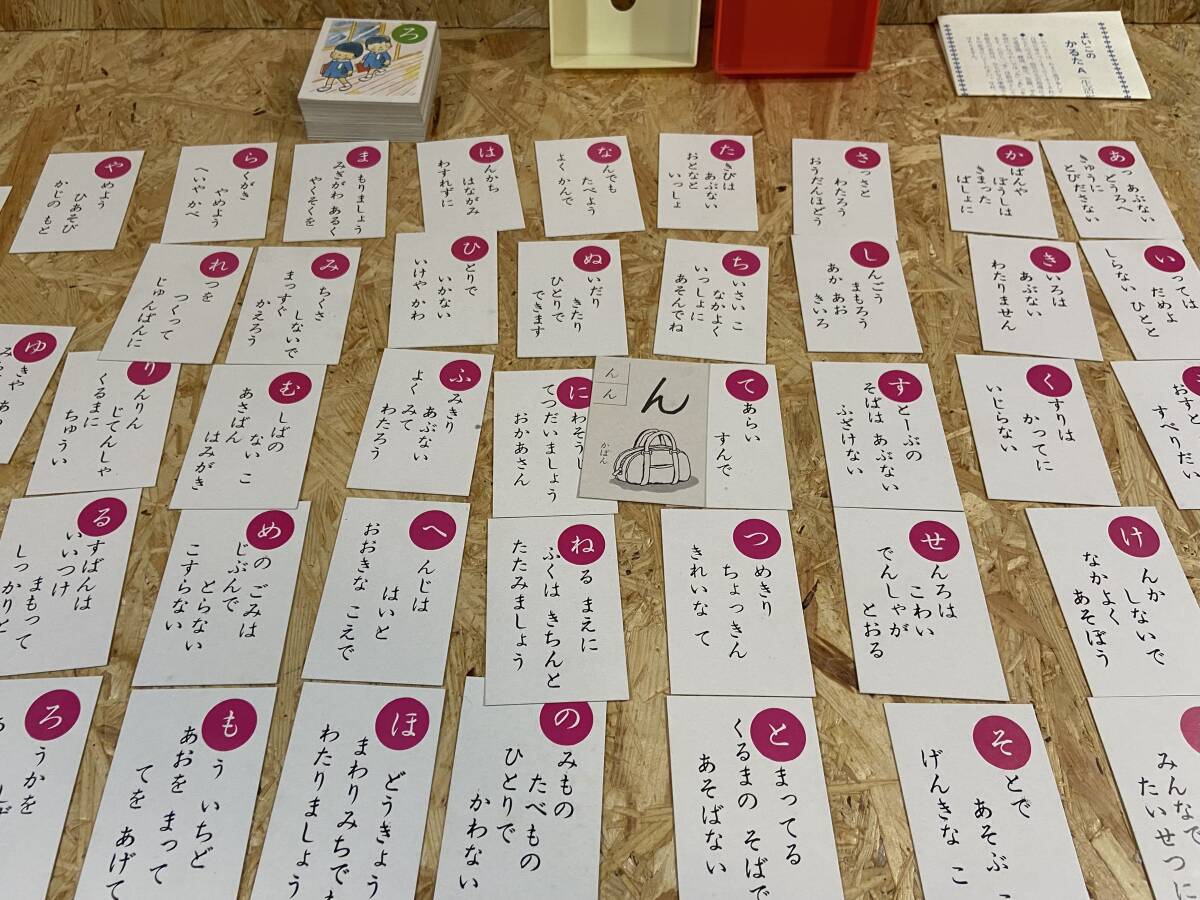 ろ
よいこの
かるた A
あっ あぶない
どうろへ
きゅうに
とびださない
いっては
だめよ
しらない ひとと
おすと
すべりだい
かばんや
ぼうしは
きまった
ばしょに
きいろは
あぶない
わたりません
くすりは
かってに
いじらない
けんか
しないで
なかよく
あそぼう
みんなで
たいせつに
さっさと
わたろう
おうだんほどう
しんごう
まもろう
あか あお
きいろ
すとーぶの
そばは あぶない
ふざけない
せんろは
こわい
でんしゃが
とおる
そとで
あそぶ
げんきな こ
たきびは
あぶない
おとなと
いっしょ
ちいさい こ
なかよく
いっしょに
あそんでね
つめきり
ちょっきん
きれいな て
てあらい
すんで
とまってる
くるまの そばで
あそばない
なんでも
たべよう
よく かんで
ぬいだり
きたり
ひとりで
できます
にわそうじ
てつだいましょう
おかあさん
ん
ん
ん
かばん
ねる まえに
ふくは きちんと
たたみましょう
のみもの
たべもの
ひとりで
かわない
はんかち
はながみ
わすれずに
ひとりで
いかない
いけや かわ
ふみきり
あぶない
よく みて
わたろう
へんじは
はいと
おおきな こえで
ほどうきょう
まわりみちでも
わたりましょう
まもりましょう
みぎがわ あるく
やくそくを
みちくさ
しないで
まっすぐ
かえろう
むしばの
ない こ
あさばん
はみがき
めの ごみは
じぶんで
とらない
こすらない
もう いちど
あおを まって
てを あげて
らくがき
やめよう
へいや かべ
れつを
つくって
じゅんばんに
りんりん
じてんしゃ
くるまに
ちゅうい
るすばんは
いいつけ
まもって
しっかりと
ろうかを
やめよう
ひあそび
かじの もと
ゆきや